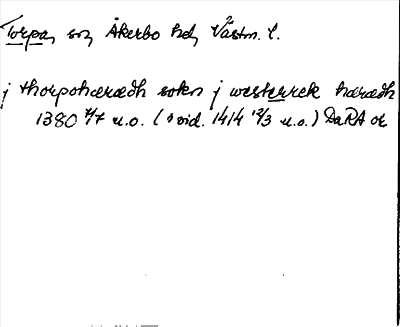 Torpa, sn, Åkerbo hd, Västm. l.
j thorpohærædh sokn j westerrek hæradh
1380 4/7 u.o. ( vid. 1414 12/3 u.o.) DaRA or